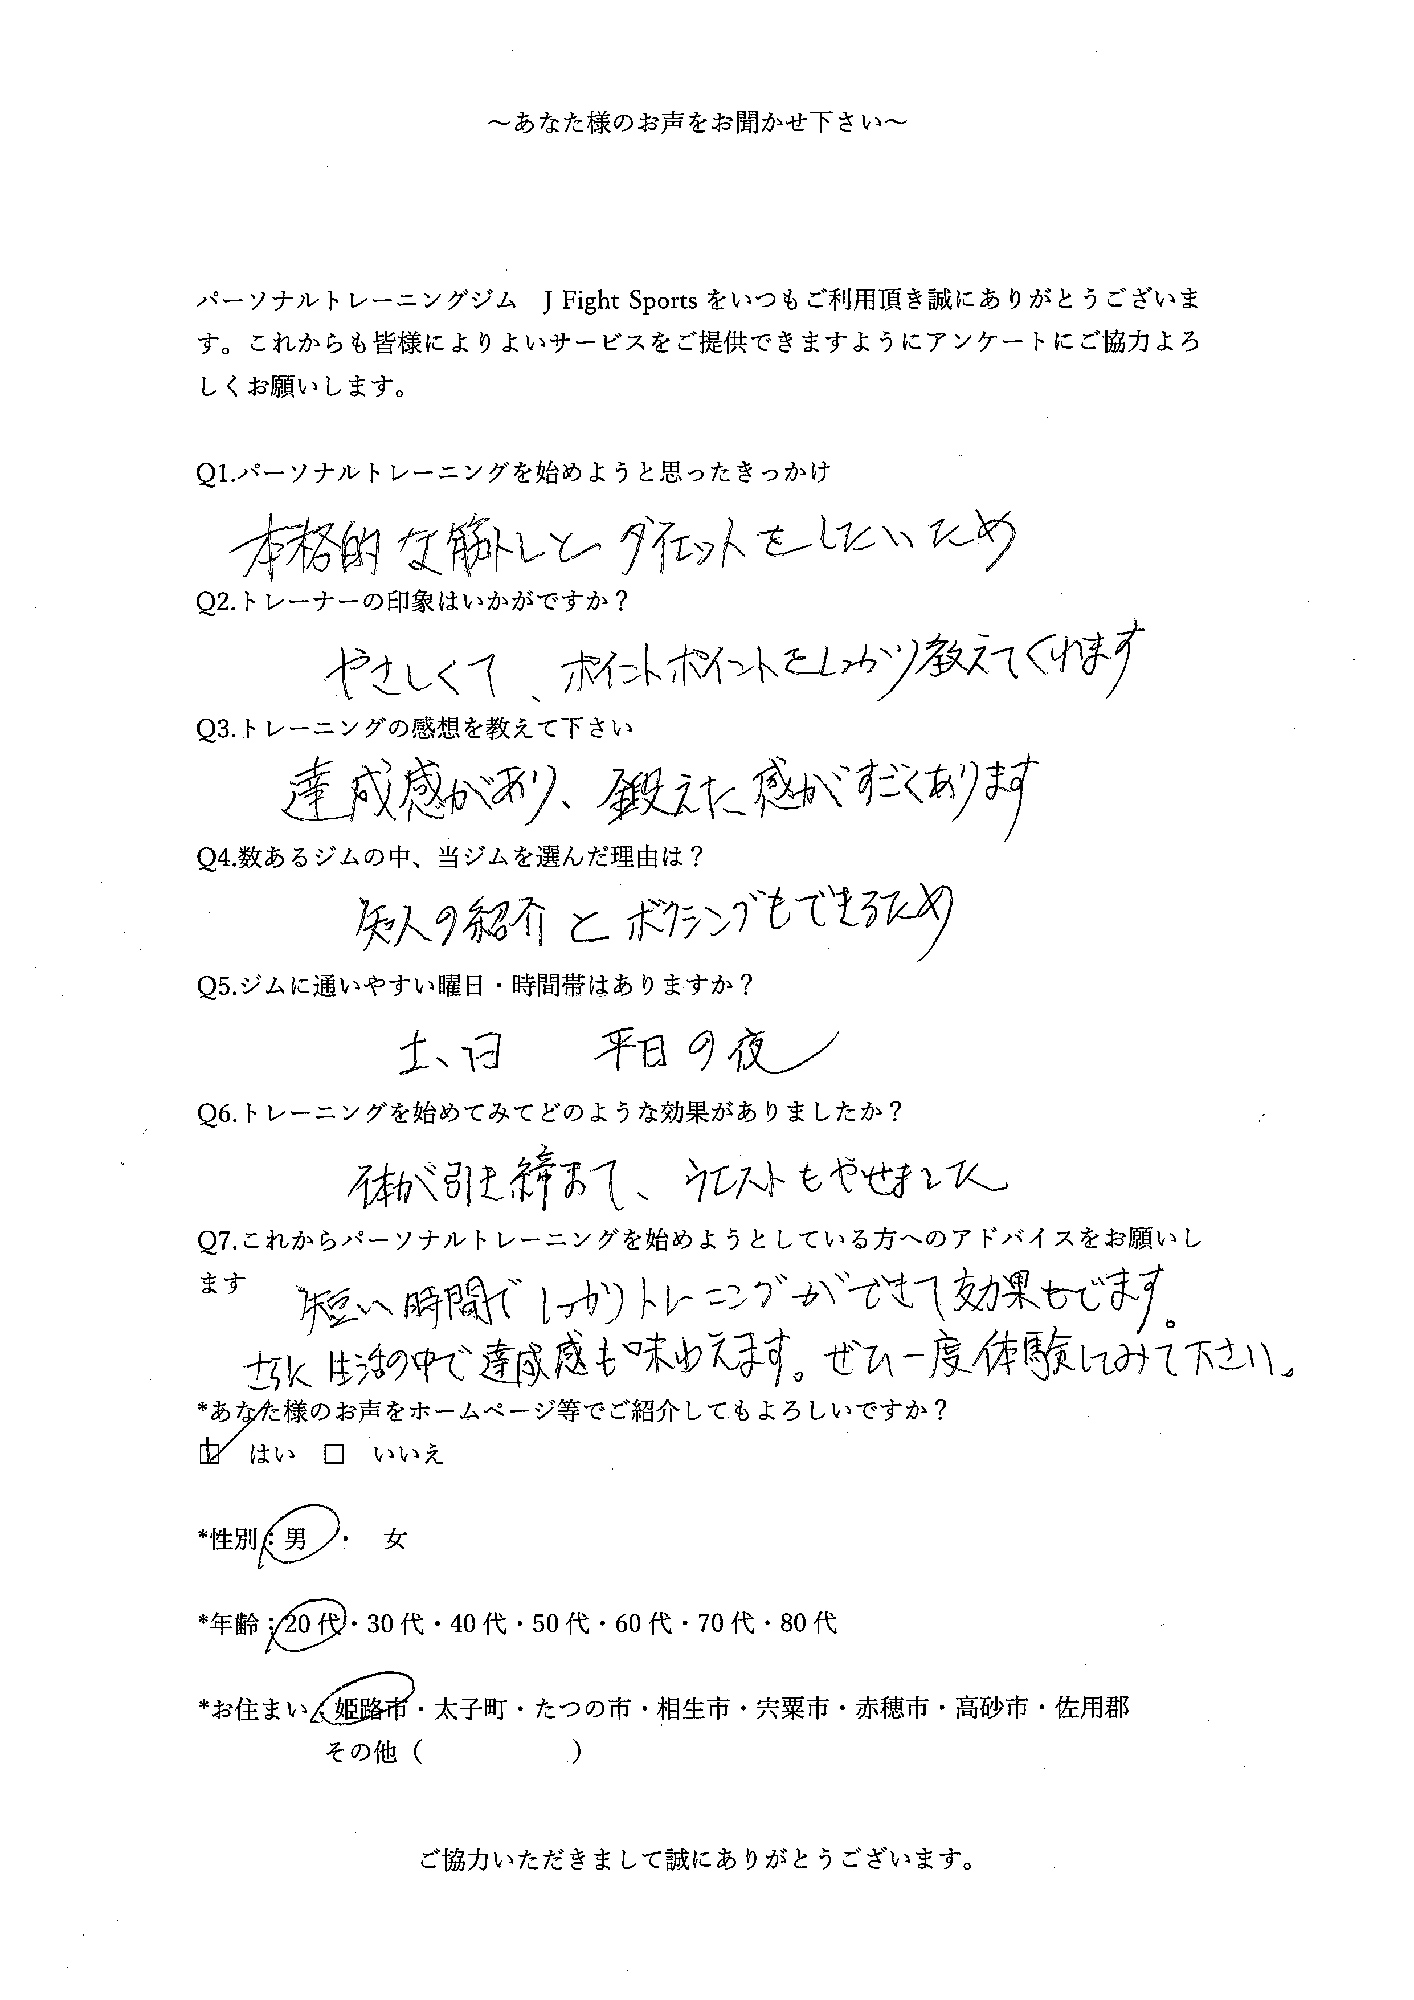 ～あなた様のお声をお聞かせ下さい～
パーソナルトレーニングジム　J Fight Sports をいつもご利用頂き誠にありがとうございま
す。これからも皆様によりよいサービスをご提供できますようにアンケートにご協力よろ
しくお願いします。
Q1.パーソナルトレーニングを始めようと思ったきっかけ
本格的な筋トレと ダイエットをしたいため
Q2.トレーナーの印象はいかがですか？
やさしくて、ポイントポイントをしっかり教えてくれます
Q3.トレーニングの感想を教えて下さい
達成感があり、鍛えた感がすごくあります
Q4.数あるジムの中、当ジムを選んだ理由は？
知人の紹介と ボクシングもできるため
Q5.ジムに通いやすい曜日・時間帯はありますか？
土、日　平日の夜
Q6.トレーニングを始めてみてどのような効果がありましたか？
体が引き締まて、ウエストもやせました
Q7.これからパーソナルトレーニングを始めようとしている方へのアドバイスをお願いし
ます
短い時間でしっかりトレーニングができて効果もでます。
さらに生活の中で達成感も味わえます。ぜひ一度体験してみて下さい。
*あなた様のお声をホームページ等でご紹介してもよろしいですか？
☑ はい　□ いいえ
*性別：男 ・ 女
*年齢：20代・30代・40代・50代・60代・70代・80代
*お住まい：姫路市・太子町・たつの市・相生市・宍粟市・赤穂市・高砂市・佐用郡
その他（　　　　　　）
ご協力いただきまして誠にありがとうございます。